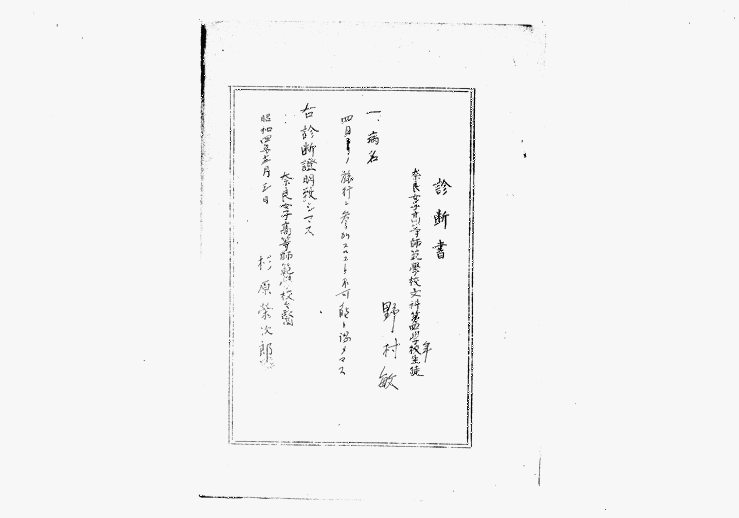 診断書
奈良女子高等師範學校文科第四学年生徒
野村敏
一、病名
四日 ノ旅行ニ参加スルコト不可能ト認メマス
右診断證明致シマス
昭和四年五月 日
奈良女子高等師範学校々醫
杉原榮次郎